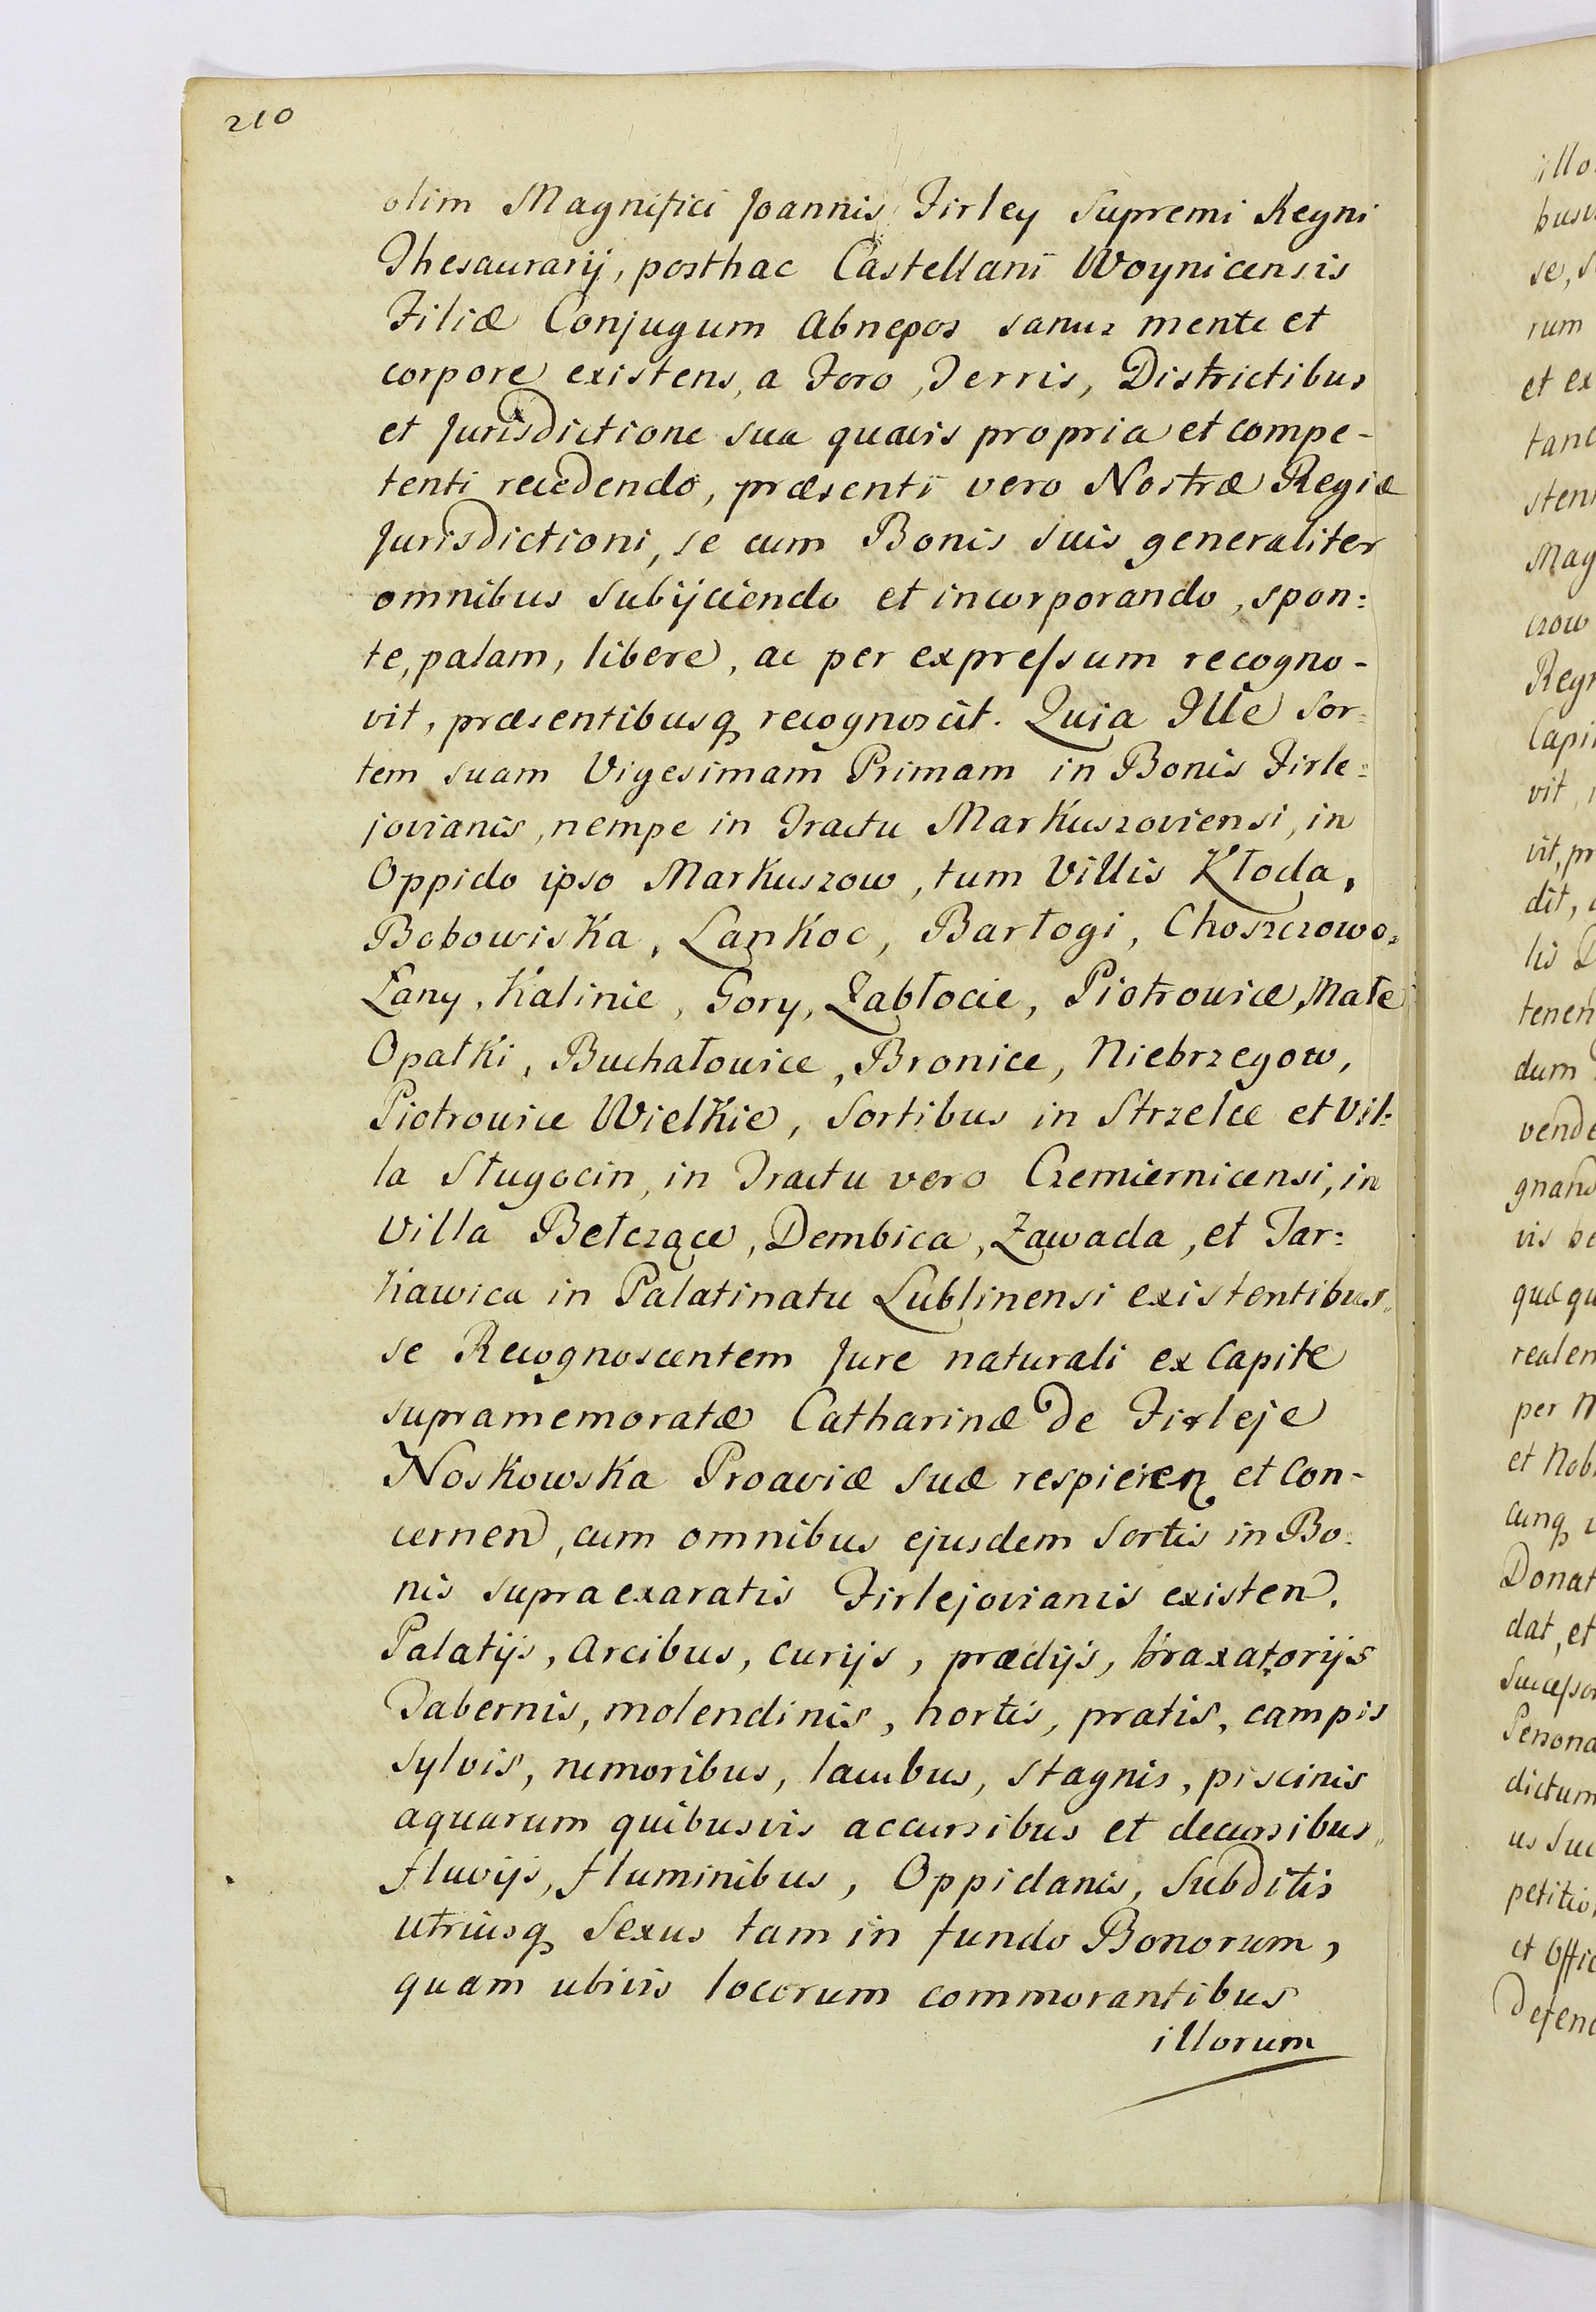 210
olim Magnifici Joannis Firley Supremi Regni
Thesaurarij, posthac Castellani Woynicensis
Filiæ Conjugum Abnepos sanus mente et
corpore existens, a Foro, Terris, Districtibus
et Jurisdictione sua quavis propria et compe-
tenti recedendo, præsenti vero Nostræ Regiæ
Jurisdictioni, se cum Bonis suis generaliter
omnibus subijciendo et incorporando, spon:
te, palam, libere, ac per expreſsum recogno-
vit, præsentibusq recognoscit. Quia Ille Sor:
tem suam Vigesimam Primam in Bonis Firle:
jovianis, nempe in Tractu Markuszoviensi, in
Oppido ipso Markuszow, tum Villis Kłoda,
Bobowiska, Lankoc, Barłogi, Choszczowo,
Łany, Kalinie, Gory, Zabłocie, Piotrowice Małe
Opatki, Buchałowice, Bronice, Niebrzegow,
Piotrowice Wielkie, Sortibus in Strzelce et Vil:
la Sługocin, in Tractu vero Czemiernicensi, in
Villa Bełczące, Dembica, Zawada, et Tar:
kawica in Palatinatu Lublinensi existentibus,
se Recognoscentem Jure naturali ex Capite
supramemoratæ Catharinæ De Firleje
Noskowska Proaviæ suæ respicien et Con-
cernen, cum omnibus ejusdem Sortis in Bo:
nis supra exaratis Firlejovianis existen,
Palatijs, Arcibus, Curijs, prædijs, braxatorijs
Tabernis, molendinis, hortis, pratis, campis
Sylvis, nemoribus, lacubus, stagnis, piscinis
aquarum quibusvis accursibus et decursibus,
fluvijs, fluminibus, Oppidanis, Subditis
utriusq Sexus tam in fundo Bonorum,
quam ubivis locorum commorantibus
illorum
illo
busv
se, s
rum
et ex
tand
sten
Mag
czow
Regn
Capi
vit
vit, pr
dit,
lis
tenen
dum
vende
gnand
vis
quæ qu
realem
per M
et Nob
cunq
Donat
dat, et
Succeſsor
Persona
dictum
us Suc
petitio
et Offic
Defend